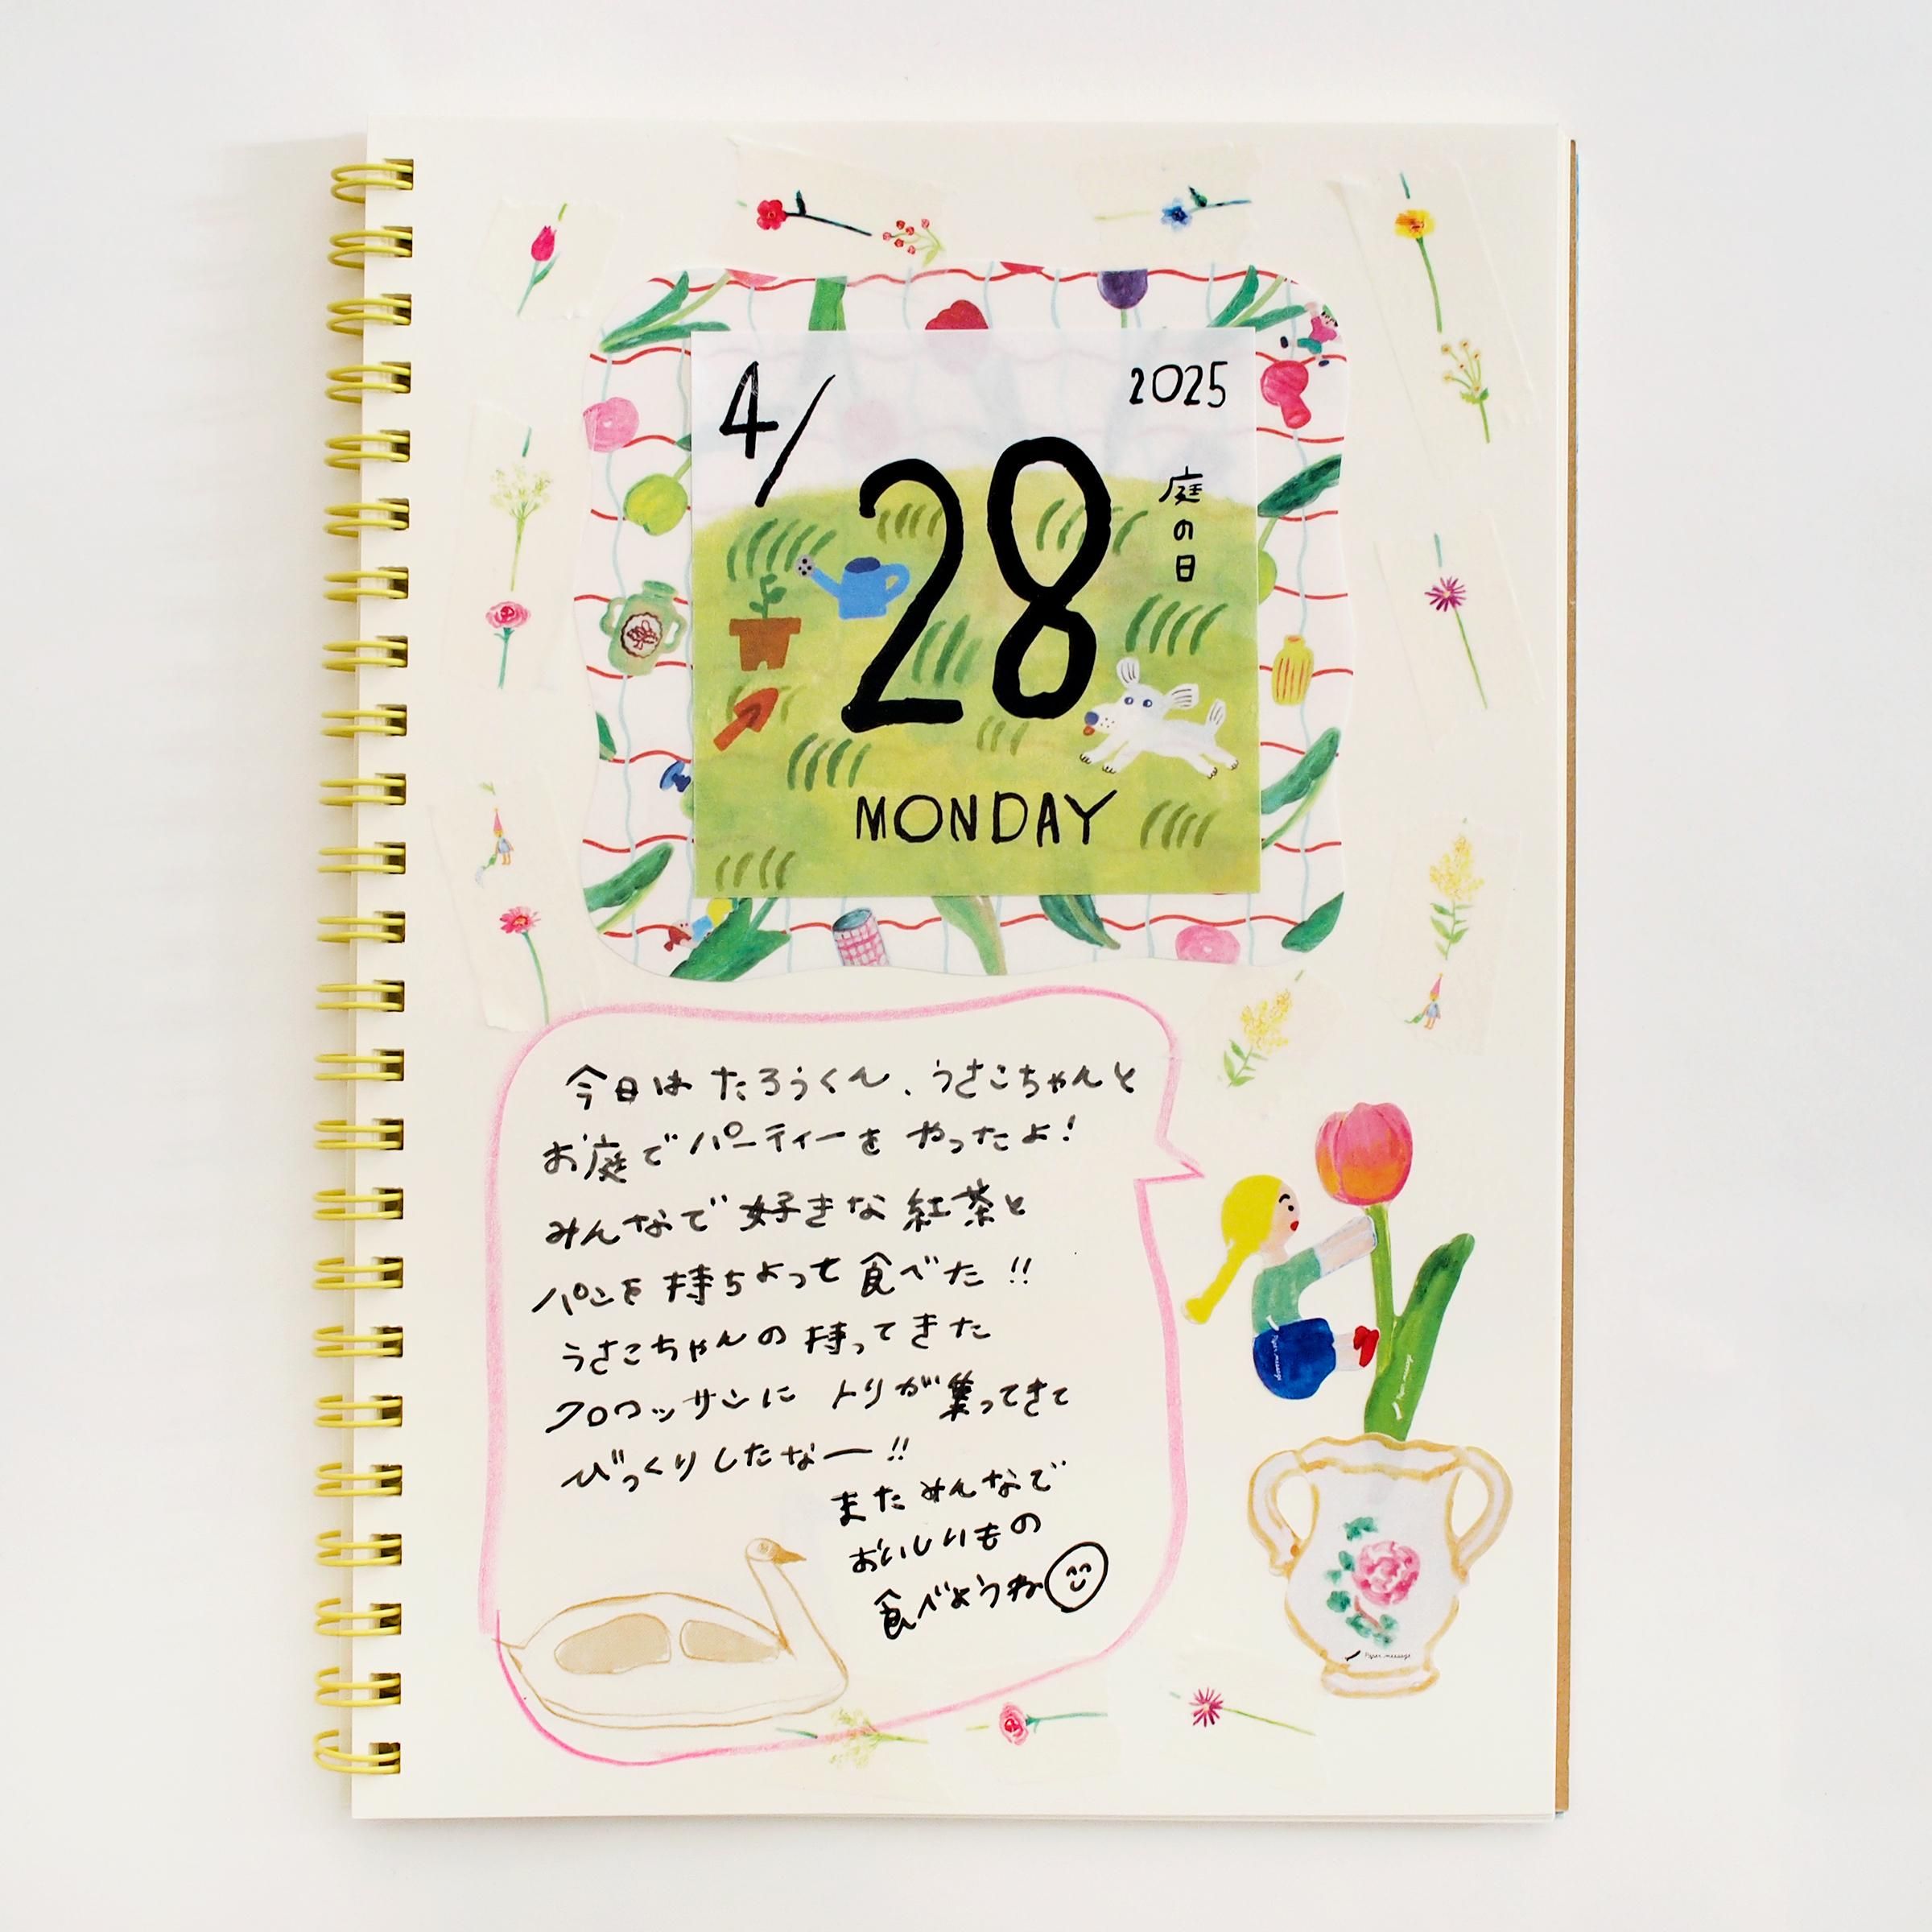 4/
2025
28
庭の日
MONDAY
今日は たろうくん、うさこちゃんと
お庭でパーティーを やったよ!
みんなで 好きな 紅茶と
パンを 持ちよって 食べた!!
うさこちゃんの 持ってきた
クロワッサンに トリが 集ってきて
びっくりしたなー!!
また みんなで
おいしいもの
食べようね
Paper message
Paper message
Paper message